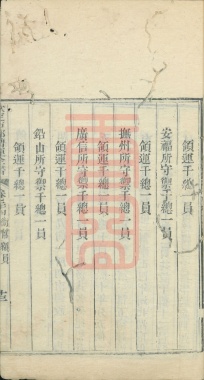 領運千總一員
安福所守禦千總一員
領運千總一員
撫州所守禦千總一員
領運千總一員
廣信所守禦千總一員
領運千總一員
鉛山所守禦千總一員
領運千總一員